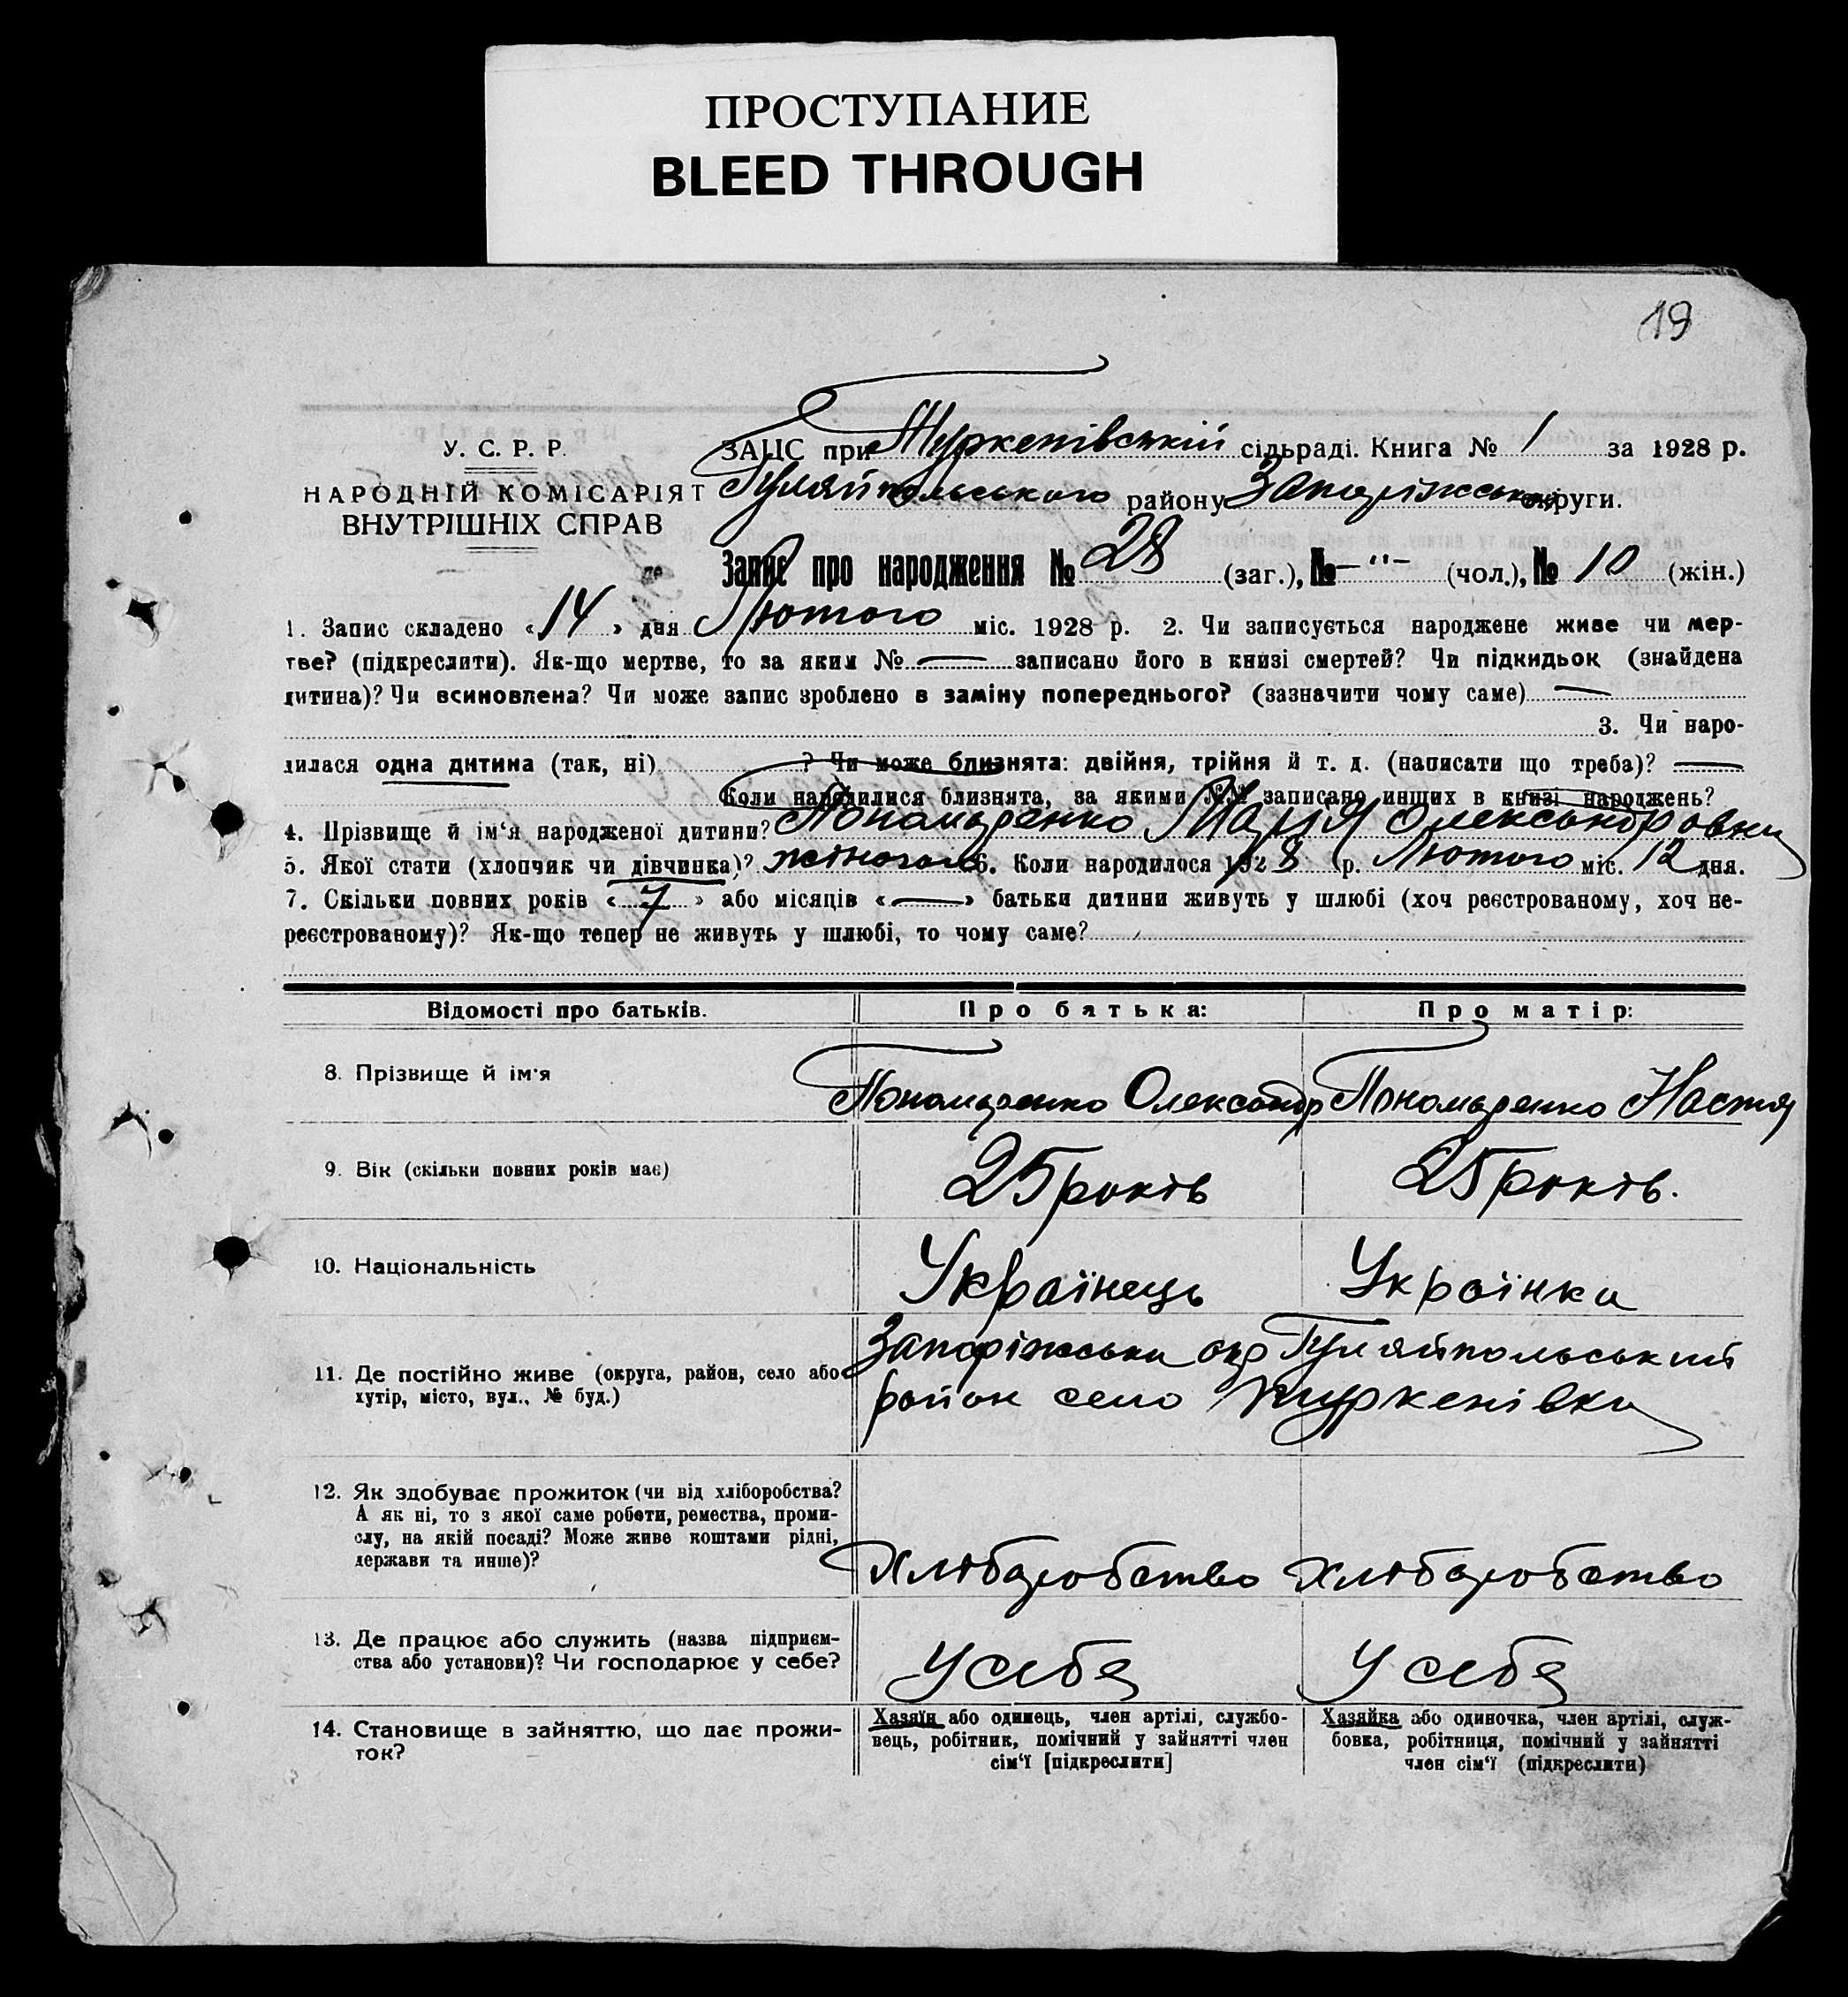 ПРОСТУПАНИЕ
BLEED THROUGH
19
У. С. Р. Р.
НАРОДНІЙ КОМІСАРІЯТ
ВНУТРІШНІХ СПРАВ
ЗАЦС при Туркенівській сільраді. Книга № 1 за 1928 р.
Гуляйпольського району Запоріжської округи.
Запис про народження № 28 (заг.), № –"– (чол.), № 10 (жін.)
1. Запис складено «14» дня Лютого міс. 1928 р. 2. Чи записується народжене живе чи мер-
тве? (підкреслити). Як-що мертве, то за яким № — записано його в книзі смертей? Чи підкидьок (знайдена
дитина)? Чи всиновлена? Чи може запис зроблено в заміну попереднього? (зазначити чому саме) —
3. Чи наро-
дилася одна дитина (так, ні) ? Чи може близнята: двійня, трійня й т. д. (написати що треба)? —
Коли народилися близнята, за якими №№ записано инших в книзі народжень?
4. Прізвище й ім‘я народженої дитини? Пономаренко Марія Олександровна
5. Якої стати (хлопчик чи дівчинка)? жіночого 6. Коли народилося 1928 р. Лютого міс. 12 дня.
7. Скільки повних років «7» або місяців «—» батьки дитини живуть у шлюбі (хоч реєстрованому, хоч не-
реєстрованому)? Як-що тепер не живуть у шлюбі, то чому саме?
Відомості про батьків. Про батька: Про матір:
8. Прізвище й ім‘я Пономаренко Олександр Пономаренко Настя
9. Вік (скільки повних років має) 25 років 25 років.
10. Національність Українець Українка
11. Де постійно живе (округа, район, село або
хутір, місто, вул., № буд.)
Запоріжська окр Гуляйпольський
район село Туркенівка
12. Як здобуває прожиток (чи від хліборобства?
А як ні, то з якої саме роботи, ремества, проми-
слу, на якій посаді? Може живе коштами рідні,
держави та инше)?
Хліборобство Хліборобство
13. Де працює або служить (назва підприєм-
ства або установи)? Чи господарює у себе?
У себя У себя
14. Становище в зайняттю, що дає прожи-
ток?
Хазяїн або одинець, член артілі, службо-
вець, робітник, помічний у зайнятті член
сім‘ї [підкреслити]
Хазяйка або одиночка, член артілі, служ-
бовка, робітниця, помічний у зайнятті
член сім‘ї (підкреслити)